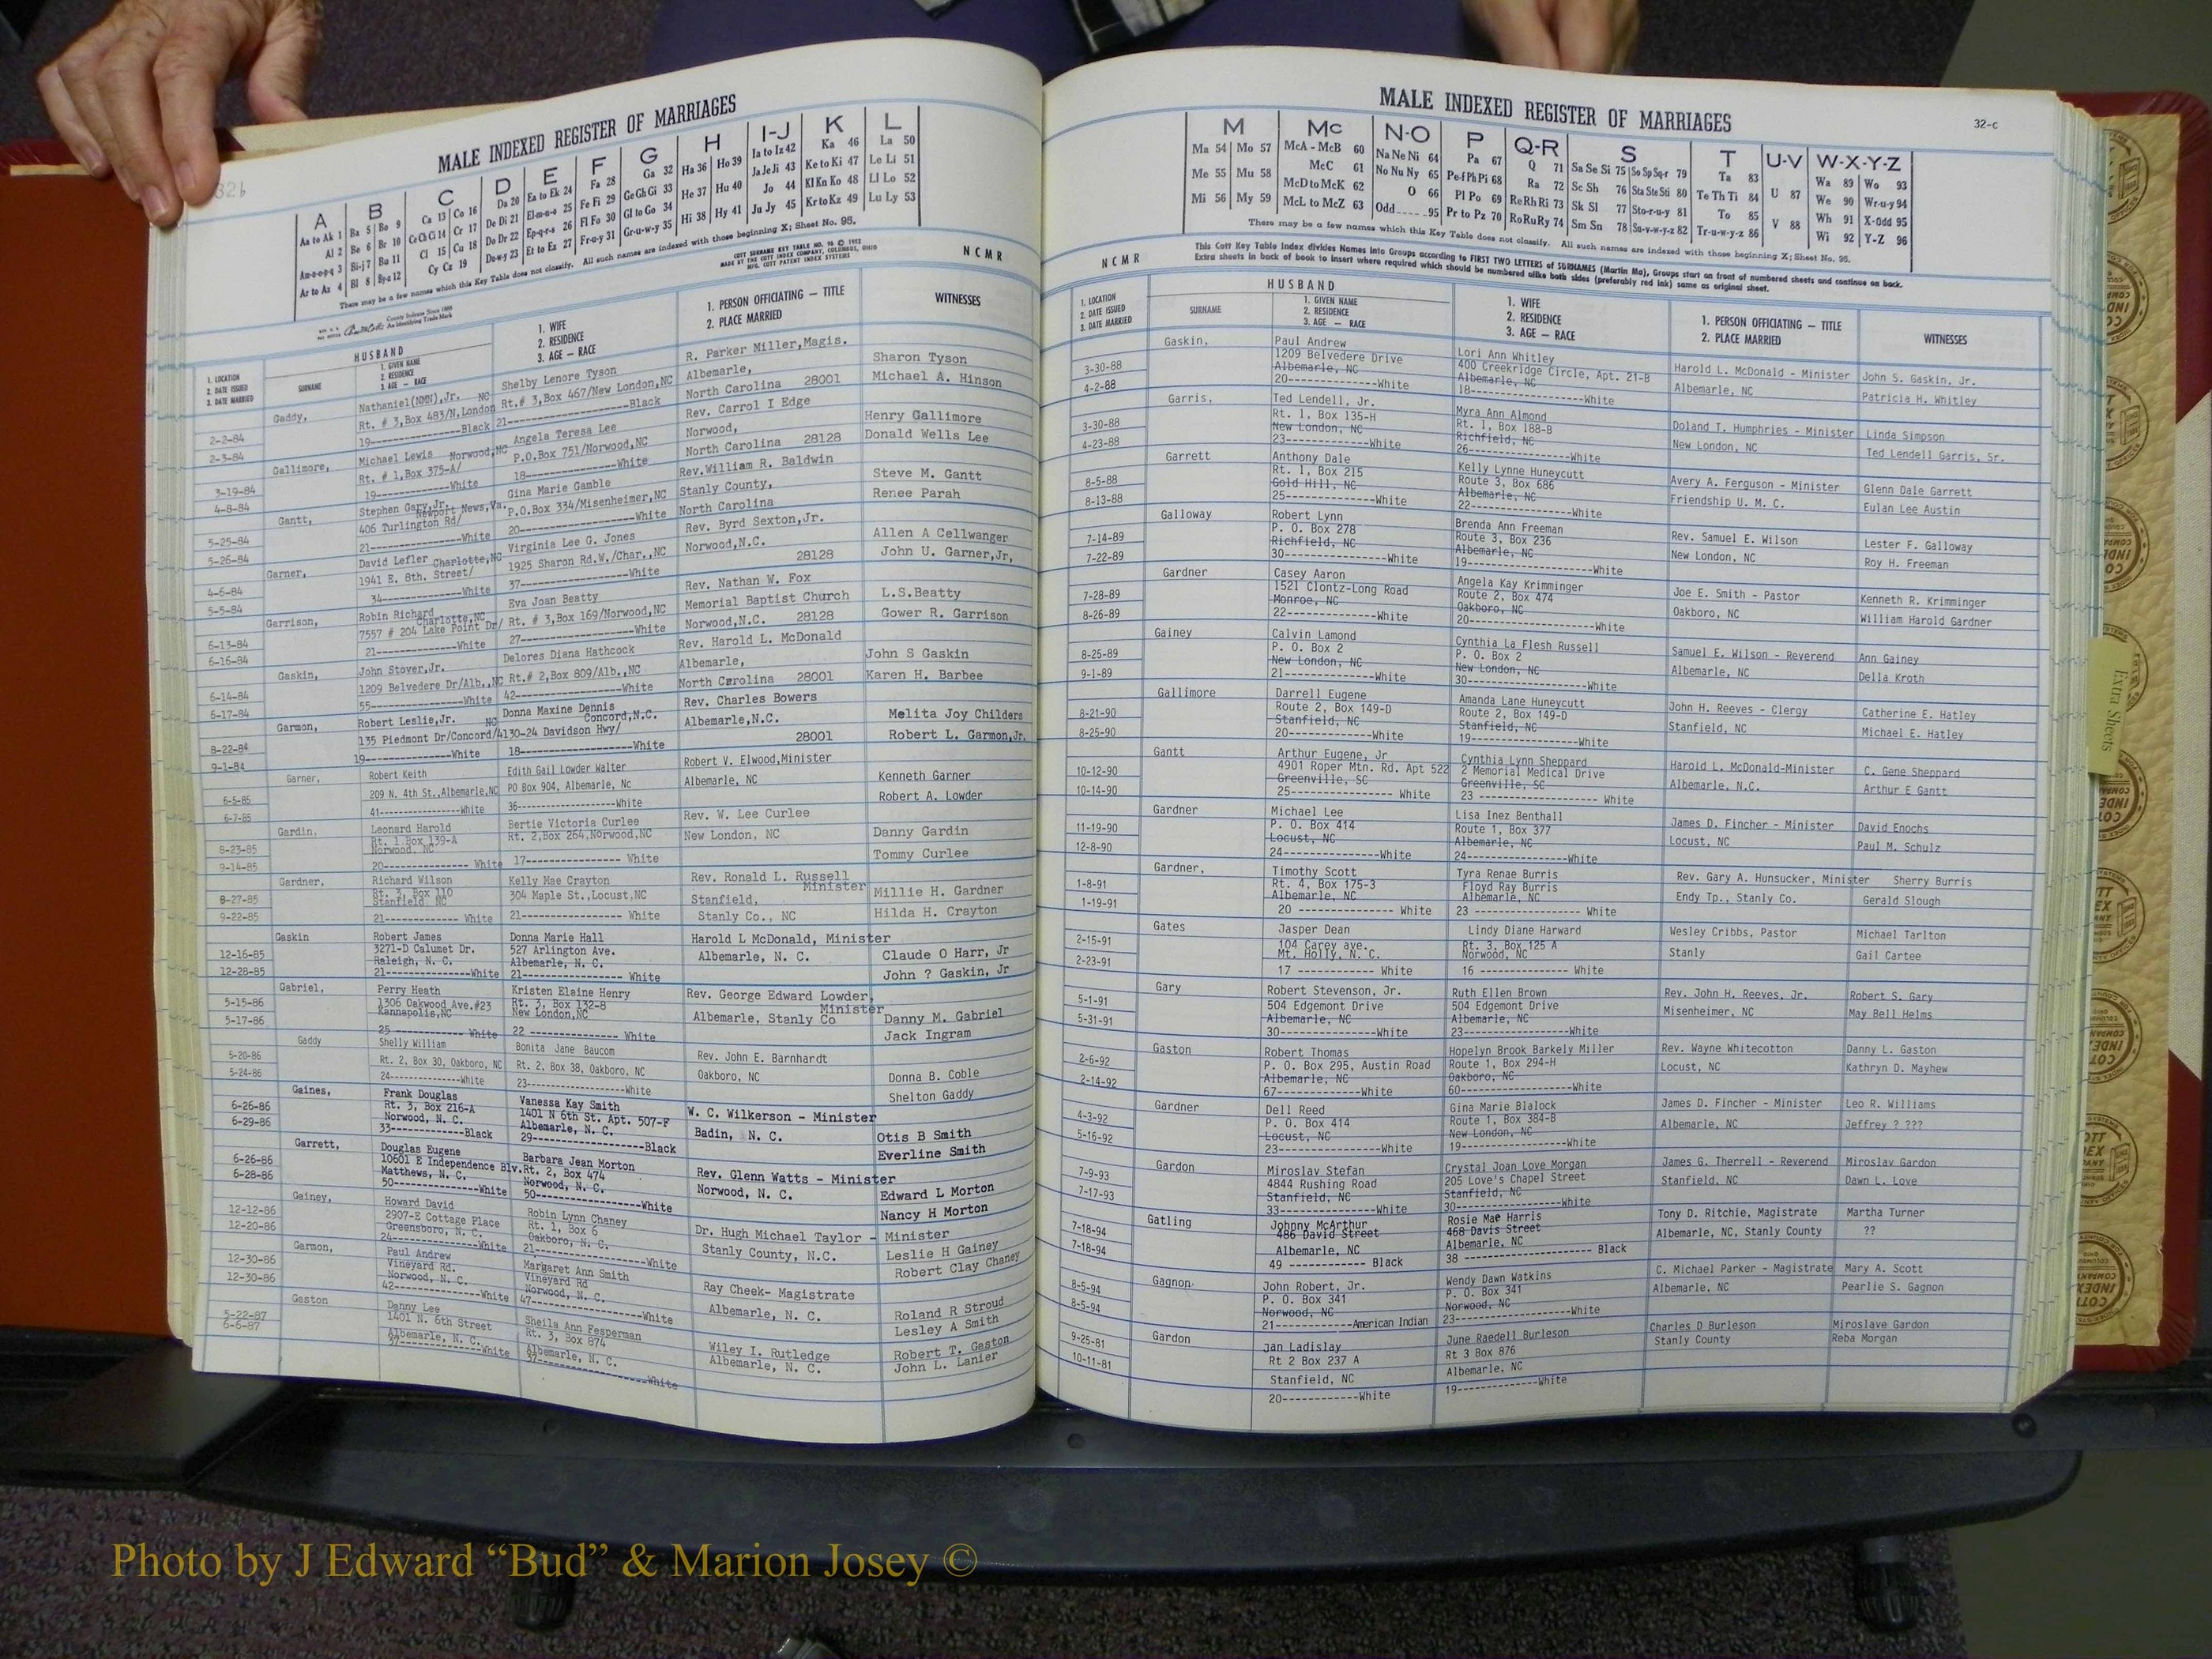 32b
MALE INDEXED REGISTER OF MARRIAGES
A B C D E F G H I-J K L
Aa to Ak 1 Ba 5 Bo 9 Ca 13 Co 16 Da 20 Ea to Ek 24 Fa 28 Ga 32 Ha 36 Ho 39 Ia to Iz 42 Ka 46 La 50
Al 2 Be 6 Br 10 Ce Ch Ci 14 Cr 17 De Di 21 El-m-n-o 25 Fe Fi 29 Ge Gh Gi 33 He 37 Hu 40 Ja Je Ji 43 Ke to Ki 47 Le Li 51
Am-n-o-p-q 3 Bi-j 7 Bu 11 Cl 15 Cu 18 Do Dr 22 Ep-q-r-s 26 Fl Fo 30 Gl to Go 34 Hi 38 Hy 41 Jo 44 Kl Kn Ko 48 Ll Lo 52
Ar to Az 4 Bl 8 By-z 12 Cy Cz 19 Du-w-y 23 Et to Ez 27 Fr-u-y 31 Gr-u-w-y 35 Ju Jy 45 Kr to Kz 49 Lu Ly 53
There may be a few names which this Key Table does not classify. All such names are indexed with those beginning X; Sheet No. 95.
County Indexes Since 1888
An Identifying Trade Mark
COTT SURNAME KEY TABLE NO. 96 © 1952
MADE BY THE COTT INDEX COMPANY, COLUMBUS, OHIO
MFG. COTT PATENT INDEX SYSTEMS
NCMR
1. LOCATION
2. DATE ISSUED
3. DATE MARRIED
HUSBAND
SURNAME
1. GIVEN NAME
2. RESIDENCE
3. AGE — RACE
1. WIFE
2. RESIDENCE
3. AGE — RACE
1. PERSON OFFICIATING — TITLE
2. PLACE MARRIED
WITNESSES
Gaddy, Nathaniel(NMN),Jr. NC Shelby Lenore Tyson R. Parker Miller,Magis. Sharon Tyson
2-2-84 Rt. # 3,Box 483/N.London Rt.# 3,Box 467/New London,NC Albemarle, Michael A. Hinson
2-3-84 19---------------Black 21---------------Black North Carolina 28001
Gallimore, Michael Lewis Norwood,NC Angela Teresa Lee Rev. Carrol I Edge Henry Gallimore
3-19-84 Rt. # 1,Box 375-A/ P.O.Box 751/Norwood,NC Norwood, Donald Wells Lee
4-8-84 19---------------White 18---------------White North Carolina 28128
Gantt, Stephen Gary,Jr. Newport News,Va. Gina Marie Gamble Rev.William R. Baldwin Steve M. Gantt
5-25-84 406 Turlington Rd/ P.O.Box 334/Misenheimer,NC Stanly County, Renee Parah
5-26-84 21---------------White 20---------------White North Carolina
Garner, David Lefler Charlotte,NC Virginia Lee G. Jones Rev. Byrd Sexton,Jr. Allen A Cellwanger
4-6-84 1941 E. 8th. Street/ 1925 Sharon Rd.W./Char.,NC Norwood,N.C. John U. Garner,Jr,
5-5-84 34---------------White 37---------------White 28128
Garrison, Robin Richard Charlotte,NC Eva Joan Beatty Rev. Nathan W. Fox L.S.Beatty
6-13-84 7557 # 204 Lake Point Dr/ Rt. # 3,Box 169/Norwood,NC Memorial Baptist Church Gower R. Garrison
6-16-84 21---------------White 27---------------White Norwood,N.C. 28128
Gaskin, John Stover,Jr. Delores Diana Hathcock Rev. Harold L. McDonald John S Gaskin
6-14-84 1209 Belvedere Dr/Alb.,NC Rt.# 2,Box 809/Alb.,NC Albemarle, Karen H. Barbee
6-17-84 55---------------White 42---------------White North Carolina 28001
Garmon, Robert Leslie,Jr. NC Donna Maxine Dennis Concord,N.C. Rev. Charles Bowers Melita Joy Childers
8-22-84 135 Piedmont Dr/Concord/4130-24 Davidson Hwy/ Albemarle,N.C. Robert L. Garmon,Jr.
9-1-84 19---------------White 18---------------White 28001
Garner, Robert Keith Edith Gail Lowder Walter Robert V. Elwood,Minister Kenneth Garner
6-5-85 209 N. 4th St.,Albemarle,NC PO Box 904, Albemarle, Nc Albemarle, NC Robert A. Lowder
6-7-85 41---------------White 36---------------White
Gardin, Leonard Harold Bertie Victoria Curlee Rev. W. Lee Curlee Danny Gardin
8-23-85 Rt. 1 Box 139-A Norwood, NC Rt. 2,Box 264,Norwood,NC New London, NC Tommy Curlee
9-14-85 20--------------- White 17--------------- White
Gardner, Richard Wilson Kelly Mae Crayton Rev. Ronald L. Russell Minister Millie H. Gardner
8-27-85 Rt. 3, Box 110 Stanfield NC 304 Maple St.,Locust,NC Stanfield, Hilda H. Crayton
9-22-85 21--------------- White 21--------------- White Stanly Co., NC
Gaskin Robert James Donna Marie Hall Harold L McDonald, Minister
12-16-85 3271-D Calumet Dr. 527 Arlington Ave. Albemarle, N. C. Claude O Harr, Jr
Raleigh, N. C. Albemarle, N. C.
12-28-85 21---------------White 21--------------- White John ? Gaskin, Jr
Gabriel, Perry Heath Kristen Elaine Henry Rev. George Edward Lowder, Minister
5-15-86 1306 Oakwood Ave.#23 Kannapolis,NC Rt. 3, Box 132-B New London,NC Albemarle, Stanly Co Danny M. Gabriel
5-17-86 25--------------- White 22--------------- White Jack Ingram
Gaddy Shelly William Bonita Jane Baucom Rev. John E. Barnhardt
5-20-86 Rt. 2, Box 30, Oakboro, NC Rt. 2, Box 38, Oakboro, NC Oakboro, NC Donna B. Coble
5-24-86 24---------------White 23---------------White Shelton Gaddy
Gaines, Frank Douglas Vanessa Kay Smith W. C. Wilkerson - Minister
6-26-86 Rt. 3, Box 216-A 1401 N 6th St. Apt. 507-F Badin, N. C. Otis B Smith
6-29-86 Norwood, N. C. Albemarle, N. C. Everline Smith
33---------------Black 29---------------Black
Garrett, Douglas Eugene Barbara Jean Morton Rev. Glenn Watts - Minister
6-26-86 10601 E Independence Blv. Rt. 2, Box 474 Norwood, N. C. Edward L Morton
6-28-86 Matthews, N. C. Norwood, N. C. Nancy H Morton
50---------------White 50---------------White
Gainey, Howard David Robin Lynn Chaney Dr. Hugh Michael Taylor - Minister
12-12-86 2907-E Cottage Place Rt. 1, Box 6 Stanly County, N.C. Leslie H Gainey
12-20-86 Greensboro, N. C. Oakboro, N. C. Robert Clay Chaney
24---------------White 21---------------White
Garmon, Paul Andrew Margaret Ann Smith Ray Cheek- Magistrate
12-30-86 Vineyard Rd. Vineyard Rd Albemarle, N. C. Roland R Stroud
12-30-86 Norwood, N. C. Norwood, N. C. Lesley A Smith
42---------------White 47---------------White
Gaston Danny Lee Sheila Ann Fesperman Wiley I. Rutledge Robert T. Gaston
5-22-87 1401 N. 6th Street Rt. 3, Box 874 Albemarle, N. C. John L. Lanier
6-6-87 Albemarle, N. C. Albemarle, N. C.
37---------------White 37---------------White
MALE INDEXED REGISTER OF MARRIAGES
32-c
M Mc N-O P Q-R S T U-V W-X-Y-Z
Ma 54 Mo 57 McA - McB 60 Na Ne Ni 64 Pa 67 Q 71 Sa Se Si 75 So Sp Sq-r 79 Ta 83 U 87 Wa 89 Wo 93
Me 55 Mu 58 McC 61 No Nu Ny 65 Pe-f Ph Pi 68 Ra 72 Sc Sh 76 Sta Ste Sti 80 Te Th Ti 84 We 90 Wr-u-y 94
Mi 56 My 59 McD to McK 62 O 66 Pl Po 69 Re Rh Ri 73 Sk Sl 77 Sto-r-u-y 81 To 85 V 88 Wh 91 X-Odd 95
McL to McZ 63 Odd 95 Pr to Pz 70 Ro Ru Ry 74 Sm Sn 78 Su-v-w-y-z 82 Tr-u-w-y-z 86 Wi 92 Y-Z 96
There may be a few names which this Key Table does not classify. All such names are indexed with those beginning X; Sheet No. 95.
This Cott Key Table Index divides Names into Groups according to FIRST TWO LETTERS of SURNAMES (Martin Ma), Groups start on front of numbered sheets and continue on back.
Extra sheets in back of book to insert where required which should be numbered alike both sides (preferably red ink) same as original sheet.
NCMR
1. LOCATION
2. DATE ISSUED
3. DATE MARRIED
HUSBAND
SURNAME
1. GIVEN NAME
2. RESIDENCE
3. AGE — RACE
1. WIFE
2. RESIDENCE
3. AGE — RACE
1. PERSON OFFICIATING — TITLE
2. PLACE MARRIED
WITNESSES
Gaskin, Paul Andrew Lori Ann Whitley
3-30-88 1209 Belvedere Drive 400 Creekridge Circle, Apt. 21-B Harold L. McDonald - Minister John S. Gaskin, Jr.
4-2-88 Albemarle, NC Albemarle, NC Albemarle, NC Patricia H. Whitley
20---------------White 18---------------White
Garris, Ted Lendell, Jr. Myra Ann Almond
3-30-88 Rt. 1, Box 135-H Rt. 1, Box 188-B Doland T. Humphries - Minister Linda Simpson
4-23-88 New London, NC Richfield, NC New London, NC Ted Lendell Garris, Sr.
23---------------White 26---------------White
Garrett Anthony Dale Kelly Lynne Huneycutt
8-5-88 Rt. 1, Box 215 Route 3, Box 686 Avery A. Ferguson - Minister Glenn Dale Garrett
8-13-88 Gold Hill, NC Albemarle, NC Friendship U. M. C. Eulan Lee Austin
25---------------White 22---------------White
Galloway Robert Lynn Brenda Ann Freeman
7-14-89 P. O. Box 278 Route 3, Box 236 Rev. Samuel E. Wilson Lester F. Galloway
7-22-89 Richfield, NC Albemarle, NC New London, NC Roy H. Freeman
30---------------White 19---------------White
Gardner Casey Aaron Angela Kay Krimminger
7-28-89 1521 Clontz-Long Road Route 2, Box 474 Joe E. Smith - Pastor Kenneth R. Krimminger
8-26-89 Monroe, NC Oakboro, NC Oakboro, NC William Harold Gardner
22---------------White 20---------------White
Gainey Calvin Lamond Cynthia La Flesh Russell
8-25-89 P. O. Box 2 P. O. Box 2 Samuel E. Wilson - Reverend Ann Gainey
9-1-89 New London, NC New London, NC Albemarle, NC Della Kroth
21---------------White 30---------------White
Gallimore Darrell Eugene Amanda Lane Huneycutt
8-21-90 Route 2, Box 149-D Route 2, Box 149-D John H. Reeves - Clergy Catherine E. Hatley
8-25-90 Stanfield, NC Stanfield, NC Stanfield, NC Michael E. Hatley
20---------------White 19---------------White
Gantt Arthur Eugene, Jr Cynthia Lynn Sheppard
10-12-90 4901 Roper Mtn. Rd. Apt 522 2 Memorial Medical Drive Harold L. McDonald-Minister C. Gene Sheppard
10-14-90 Greenville, SC Greenville, SC Albemarle, N.C. Arthur E Gantt
25--------------- White 23 --------------- White
Gardner Michael Lee Lisa Inez Benthall
11-19-90 P. O. Box 414 Route 1, Box 377 James D. Fincher - Minister David Enochs
12-8-90 Locust, NC Albemarle, NC Locust, NC Paul M. Schulz
24---------------White 24---------------White
Gardner, Timothy Scott Tyra Renae Burris Rev. Gary A. Hunsucker, Minister Sherry Burris
1-8-91 Rt. 4, Box 175-3 Floyd Ray Burris
1-19-91 Albemarle, NC Albemarle, NC Endy Tp., Stanly Co. Gerald Slough
20 --------------- White 23 --------------- White
Gates Jasper Dean Lindy Diane Harward Wesley Cribbs, Pastor Michael Tarlton
2-15-91 104 Carey ave. Rt. 3, Box 125 A
2-23-91 Mt. Holly, N. C. Norwood, NC Stanly Gail Cartee
17 --------------- White 16 --------------- White
Gary Robert Stevenson, Jr. Ruth Ellen Brown Rev. John H. Reeves, Jr. Robert S. Gary
5-1-91 504 Edgemont Drive 504 Edgemont Drive Misenheimer, NC May Bell Helms
5-31-91 Albemarle, NC Albemarle, NC
30---------------White 23---------------White
Gaston Robert Thomas Hopelyn Brook Barkely Miller Rev. Wayne Whitecotton Danny L. Gaston
2-6-92 P. O. Box 295, Austin Road Route 1, Box 294-H Locust, NC Kathryn D. Mayhew
2-14-92 Albemarle, NC Oakboro, NC
67---------------White 60---------------White
Gardner Dell Reed Gina Marie Blalock James D. Fincher - Minister Leo R. Williams
4-3-92 P. O. Box 414 Route 1, Box 384-B Albemarle, NC Jeffrey ? ???
5-16-92 Locust, NC New London, NC
23---------------White 19---------------White
Gardon Miroslav Stefan Crystal Joan Love Morgan James G. Therrell - Reverend Miroslav Gardon
7-9-93 4844 Rushing Road 205 Love's Chapel Street Stanfield, NC Dawn L. Love
7-17-93 Stanfield, NC Stanfield, NC
33---------------White 30---------------White
Gatling Johnny McArthur Rosie Mae Harris Tony D. Ritchie, Magistrate Martha Turner
7-18-94 486 David Street 468 Davis Street Albemarle, NC, Stanly County ??
7-18-94 Albemarle, NC Albemarle, NC
49 ------------ Black 38 --------------- Black
Gagnon, John Robert, Jr. Wendy Dawn Watkins C. Michael Parker - Magistrate Mary A. Scott
8-5-94 P. O. Box 341 P. O. Box 341 Albemarle, NC Pearlie S. Gagnon
8-5-94 Norwood, NC Norwood, NC
21------------American Indian 23---------------White
Gardon Jan Ladislay June Raedell Burleson Charles D Burleson Miroslave Gardon
9-25-81 Rt 2 Box 237 A Rt 3 Box 876 Stanly County Reba Morgan
10-11-81 Stanfield, NC Albemarle, NC
20------------White 19------------White
Extra Sheets
Photo by J Edward “Bud” & Marion Josey ©